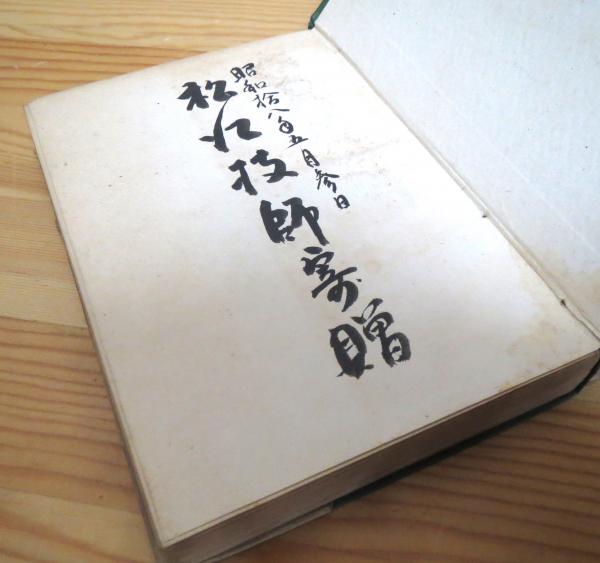 昭和拾八年五月参日
松江技師寄贈